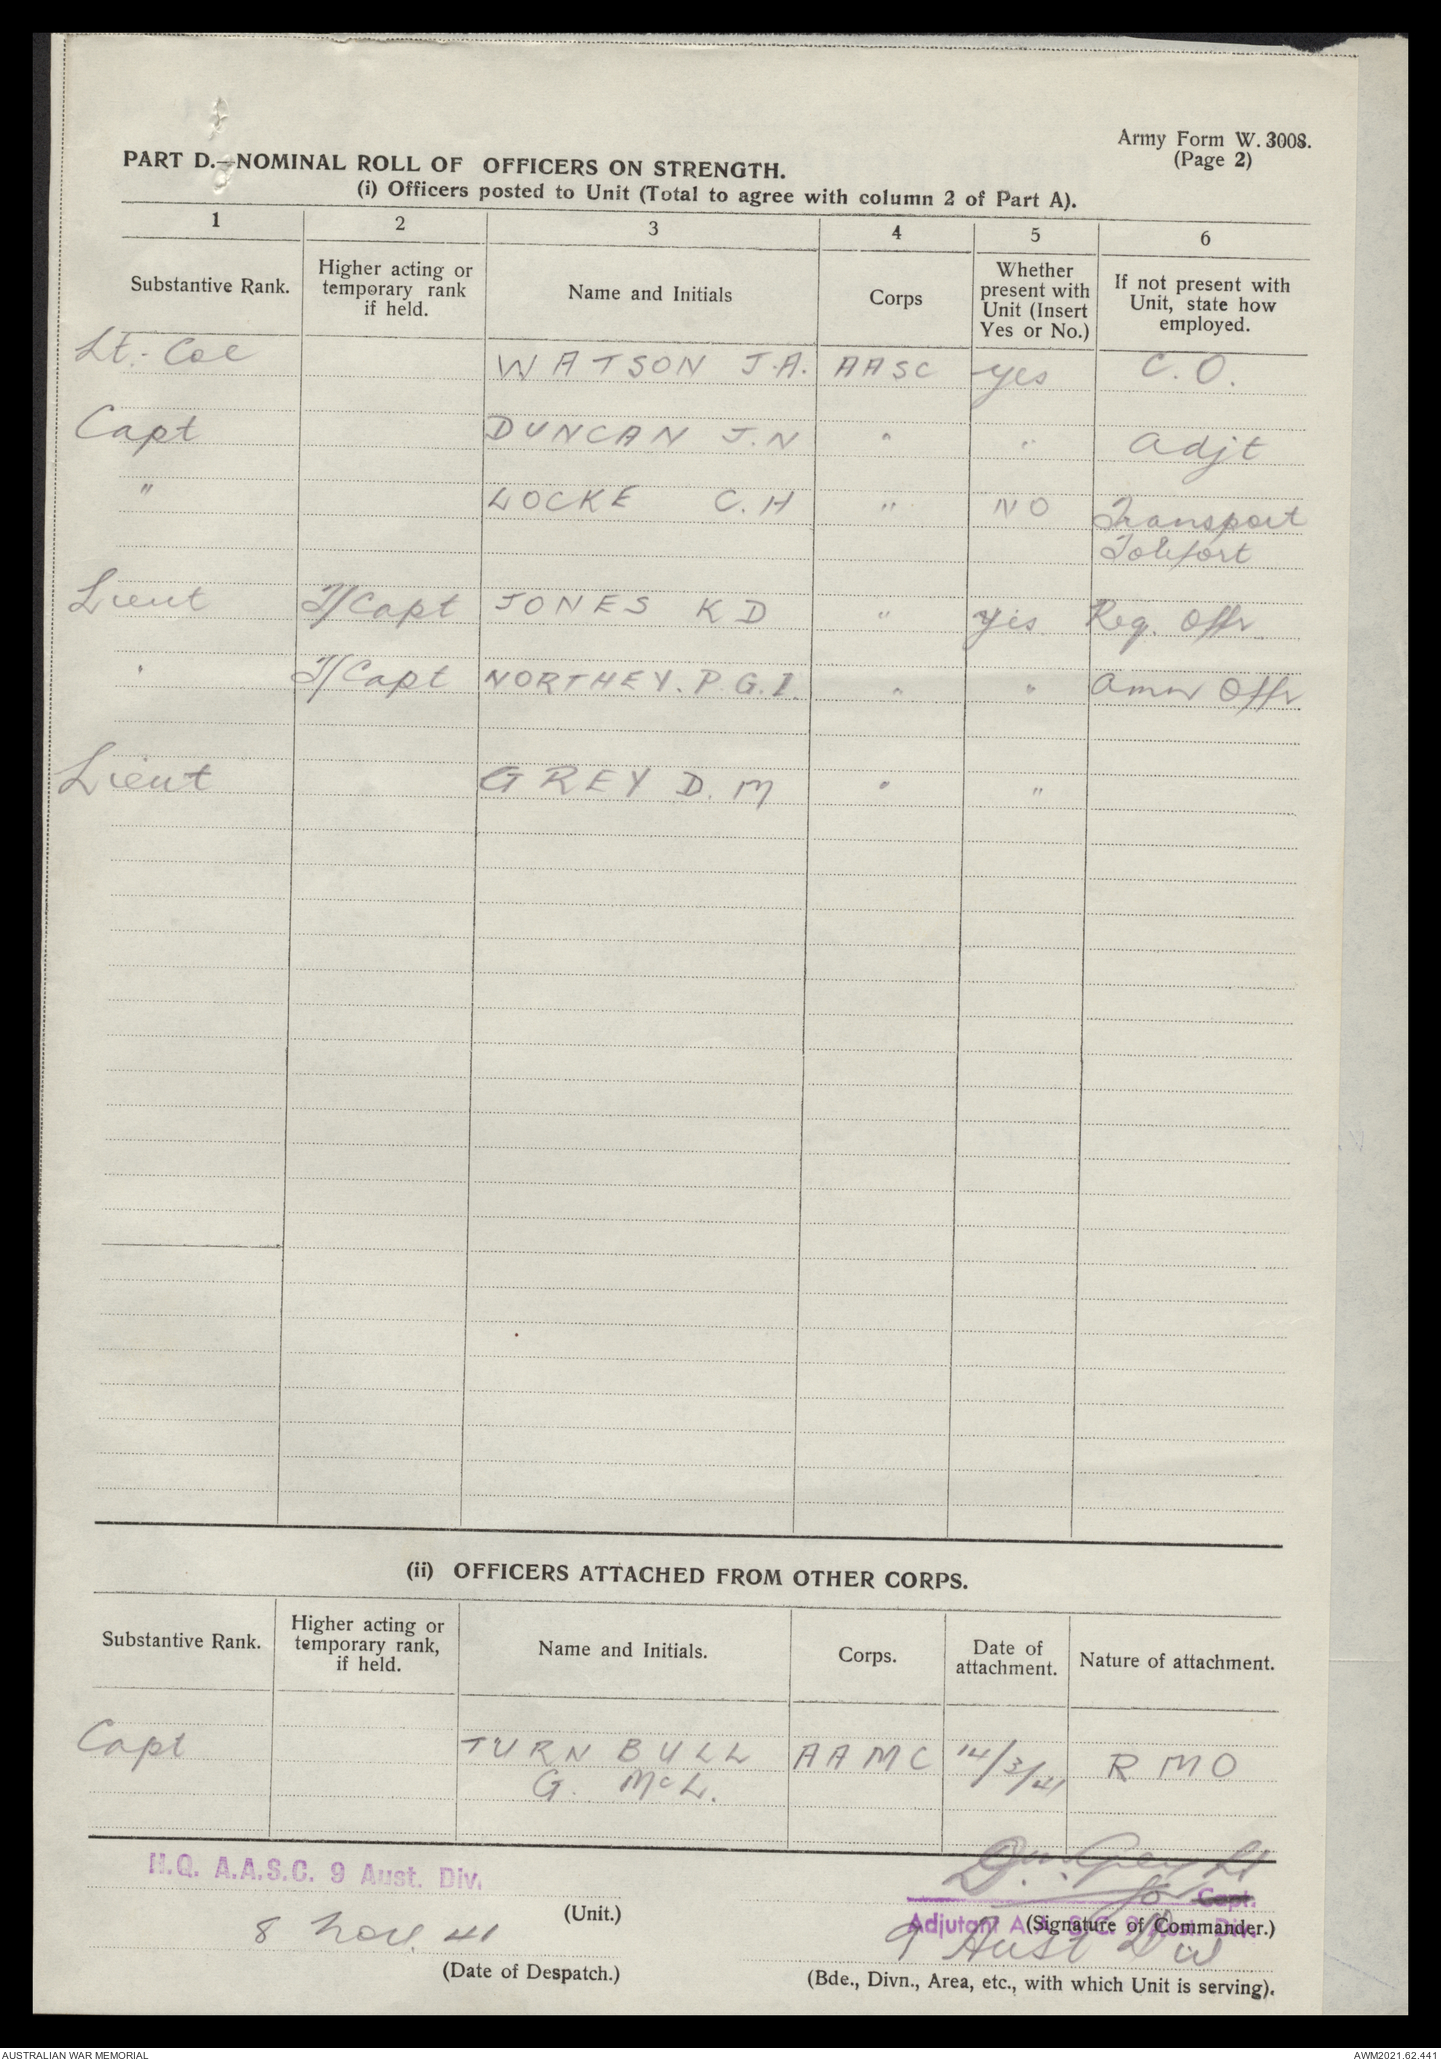 Army Form W. 3008.
(Page 2)
PART D.—NOMINAL ROLL OF OFFICERS ON STRENGTH.
(i) Officers posted to Unit (Total to agree with column 2 of Part A).
1 2 3 4 5 6
Substantive Rank. Higher acting or temporary rank if held. Name and Initials Corps Whether present with Unit (Insert Yes or No.) If not present with Unit, state how employed.
Lt.-Col WATSON J.A. AASC yes C.O.
Capt DUNCAN J.N " " Adjt
" LOCKE C.H " NO Transport
Lieut T/Capt JONES K D " Yes Req. Offr
" T/Capt NORTHEY. P.G.I. " " Amn Offr
Lieut GREY D.M " "
(ii) OFFICERS ATTACHED FROM OTHER CORPS.
Substantive Rank. Higher acting or temporary rank, if held. Name and Initials. Corps. Date of attachment. Nature of attachment.
Capt TURNBULL AAMC 14/3/41 RMO
G. McL.
H.Q. A.A.S.C. 9 Aust. Div.
(Unit.)
D.M. Grey Lt
for Capt.
Adjutant A.A.S.C. 9 Aust. Div.
(Signature of Commander.)
8 Nov. 41
9 Aust Div
(Date of Despatch.)
(Bde., Divn., Area, etc., with which Unit is serving).
AUSTRALIAN WAR MEMORIAL
AWM2021.62.441